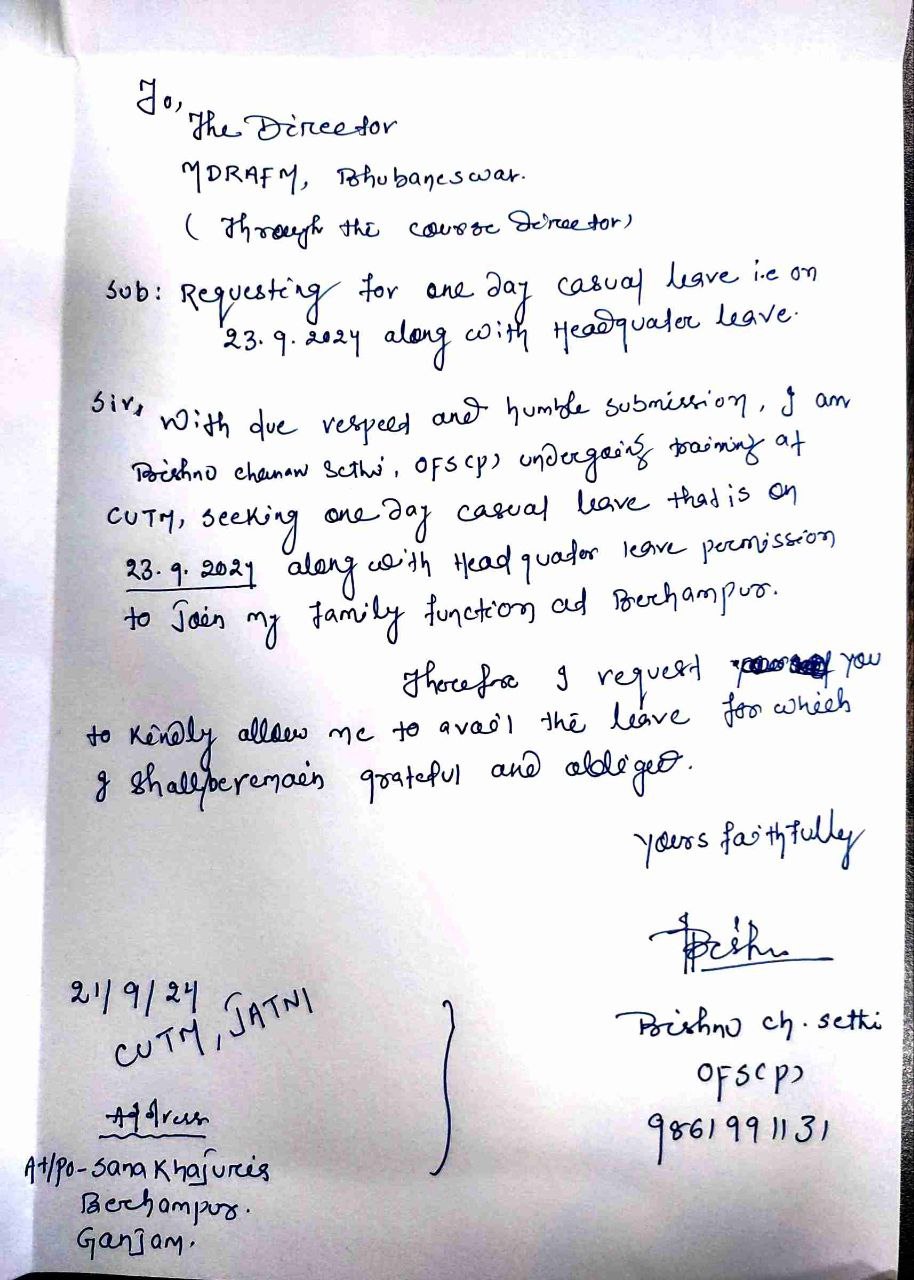 To,
The Director
MDRAFM, Bhubaneswar.
(Through the course Director)
Sub: Requesting for one day casual leave i.e on
23.9.2024 along with Headquater leave.
Sir,
With due respect and humble submission, I am
Bishno charan Sethi, OFS(P) undergoing training at
CUTM, seeking one day casual leave that is on
23.9.2024 along with Head quater leave permission
to join my family function at Berhampur.
Therefore I request you
to kindly allow me to avail the leave for which
I shall be remain grateful and obliged.
yours faithfully
Bishn
21/9/24
CUTM, JATNI
Bishno ch. sethi
OFS(P)
9861991131
Address
At/Po-Sana Khajuria
Berhampur.
Ganjam.